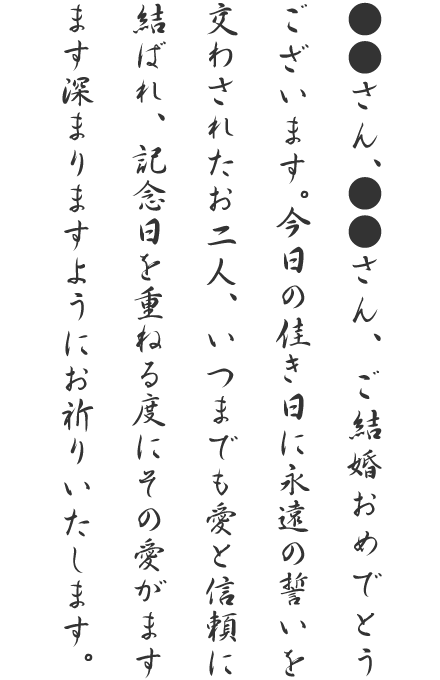 ●●さん、●●さん、ご結婚おめでとう
ございます。今日の佳き日に永遠の誓いを
交わされたお二人、いつまでも愛と信頼に
結ばれ、記念日を重ねる度にその愛がます
ます深まりますようにお祈りいたします。